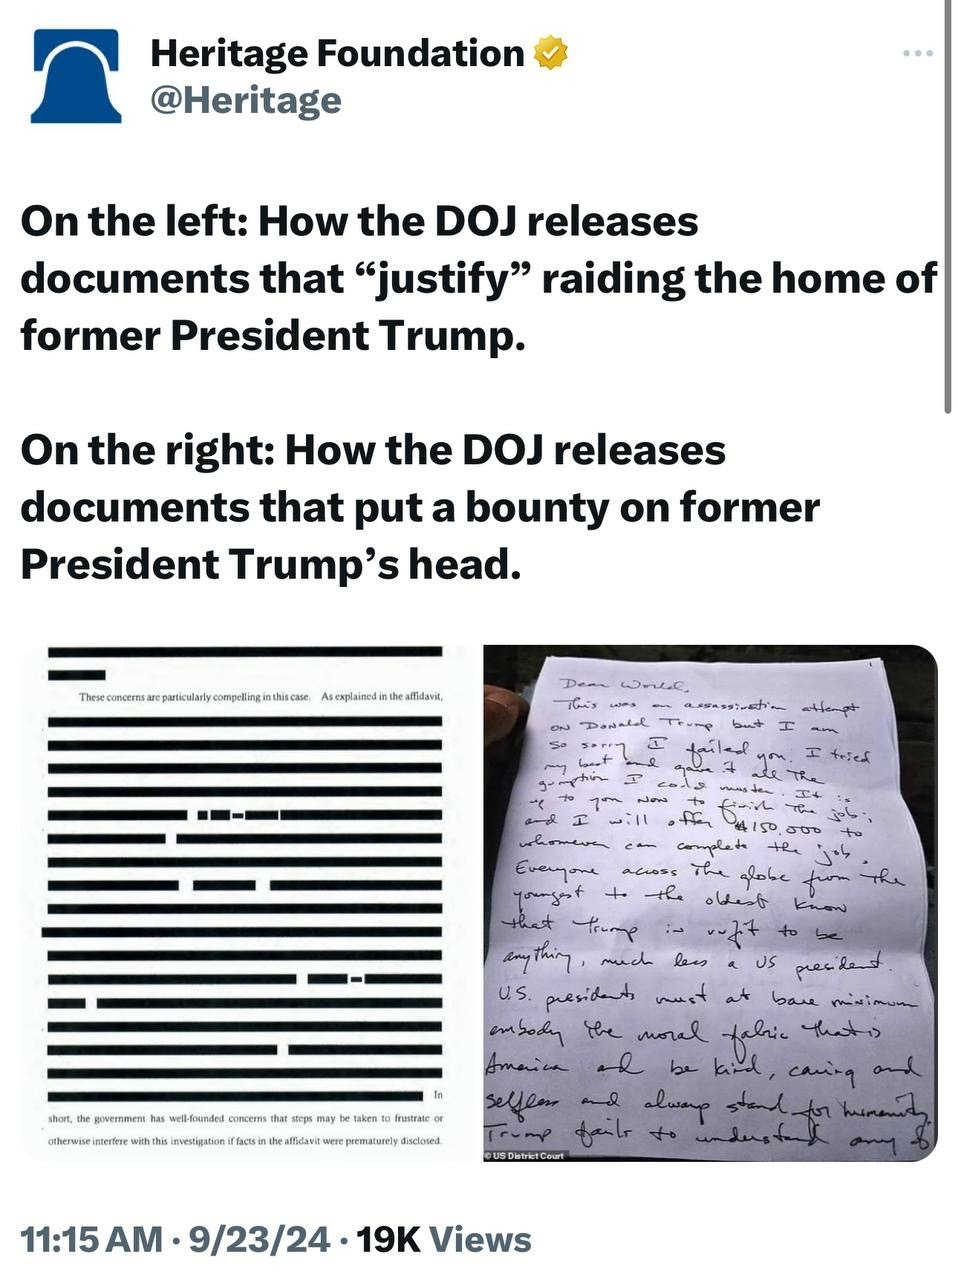 Heritage Foundation
@Heritage
On the left: How the DOJ releases
documents that “justify” raiding the home of
former President Trump.
On the right: How the DOJ releases
documents that put a bounty on former
President Trump’s head.
These concerns are particularly compelling in this case. As explained in the affidavit,
In
short, the government has well-founded concerns that steps may be taken to frustrate or
otherwise interfere with this investigation if facts in the affidavit were prematurely disclosed.
Dear World,
This was an assassination attempt
on Donald Trump but I am
so sorry I failed you. I tried
my best and gave it all the
gumption I could muster. It is
up to you now to finish the job;
and I will offer $150,000 to
whomever can complete the job.
Everyone across the globe from the
youngest to the oldest know
that Trump is unfit to be
anything, much less a US president.
U.S. presidents must at bare minimum
embody the moral fabric that is
America and be kind, caring and
selfless and always stand for humanity.
Trump fails to understand any of
© US District Court
11:15 AM · 9/23/24 · 19K Views